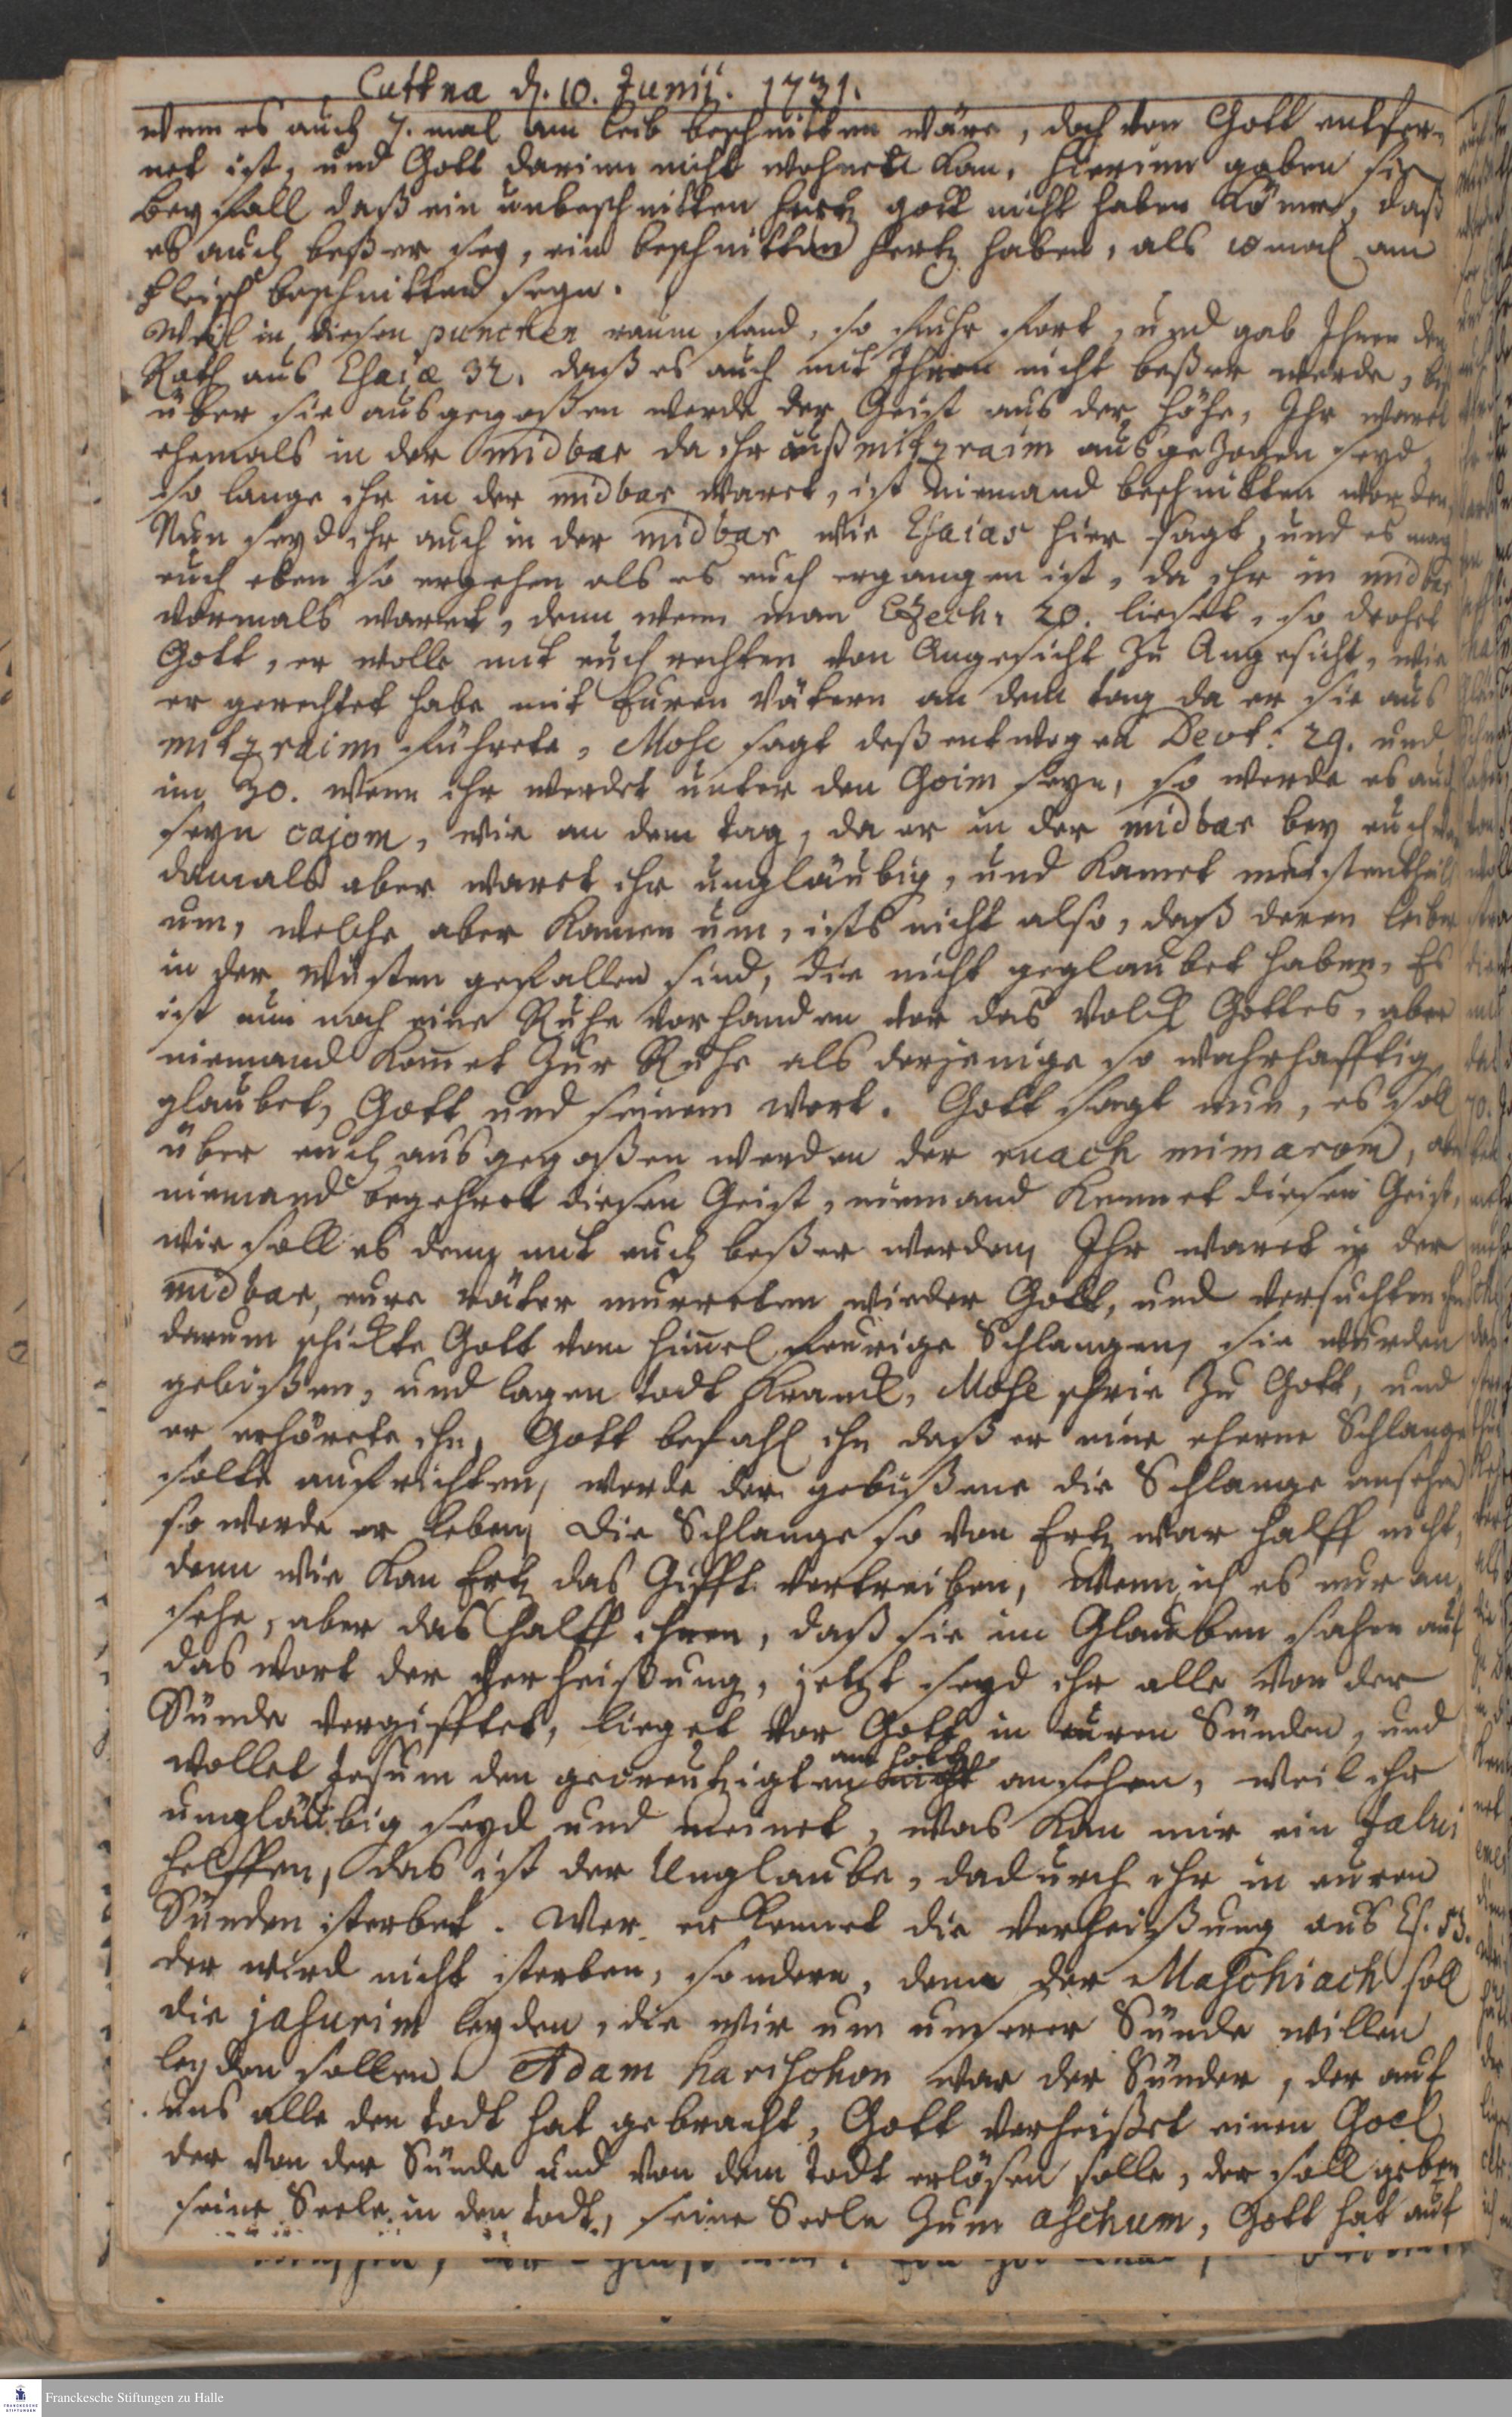 Cuttna d. 10. Junii. 1731.
wenn es auch 7. mal am leib beschnitten wäre, doch von Gott entfer-
net ist, und Gott darinn nicht wohnen kan, hierinn gaben sie
beyfall daß ein unbeschnitten hertz gott nicht haben könne, daß
es auch beßer sey, ein beschnitten hertz haben, als 10 mal am
fleisch beschnitten seyn.
Weil in diesen puncten raum fand, so fuhr fort, und gab Ihnen den
Rath aus Esaiæ 32. daß es auch mit Ihnen nicht beßer werde, biß
über sie ausgegoßen werde der Geist aus der höhe, Ihr waret
ehemals in der midbar da ihr auß mitzraim ausgezogen seyd,
so lange ihr in der midbar waret, ist niemand beschnitten worden,
Nun seyd ihr auch in der midbar wie Esaias hier sagt, und es mag
euch eben so ergehen als es euch ergangen ist, da ihr in midbar
vormals waret, denn wenn man Ezech. 20. lieset, so drohet
Gott, er wolle mit euch rechten von Angesicht zu Angesicht, wie
er gerechtet habe mit Euren Vätern an dem tag da er sie aus
mitzraim führete, Mose sagt deßentwegen Devt: 29. und
im 30. wenn ihr werdet unter den Goim seyn, so werde es auch
seyn cajom, wie an dem tag, da er in der midbar bey euch
damals aber waret ihr ungläubig, und kamet meistentheils
um, welche aber kamen um, ists nicht also, daß deren leiber
in der wüsten gefallen sind, die nicht geglaubet haben, Es
ist nun noch eine Ruhe vorhanden vor das Volck Gottes, aber
niemand kom̄et zur Ruhe als derjenige so wahrhafftig
glaubet, Gott und seinem wort. Gott sagt nun, es soll
über euch ausgegoßen werden der ruach mimarom, aber
niemand begehret diesen Geist, niemand kennet diesen Geist,
wie soll es denn mit euch beßer werden, Ihr waret in der
midbar, eure väter murreten wieder Gott, und versuchten ihn
darum schickte Gott vom him̄el feurige Schlangen, sie wurden
gebißen, und lagen todt kranck, Mose schrie zu Gott, und
er erhörete ihn, Gott befahl ihn daß er eine eherne Schlange
solte aufrichten, werde der gebißene die Schlange ansehen
so werde er leben, Die Schlange so von Ertz war halff nicht,
denn wie kan Ertz das Gifft vertreiben, wenn ich es nur an
sehe, aber das halff ihnen, daß sie im Glauben sahen auf
das wort der verheißung, jetzt seyd ihr alle von der
Sünde vergifftet, lieget vor Gott in euren Sünden, und
wollet Jesum den gecreutzigten am holtz nicht ansehen, weil ihr
ungläubig seyd und meinet, was kan mir ein Talui
helffen, das ist der Unglaube, dadurch ihr in euren
Sünden sterbet. Wer erkennet die Verheißung aus Es. 53.
der wird nicht sterben, sondern, denn der Maschiach soll
die jasurim leyden, die wir um unserer Sünde willen
leyden sollen. Adam harischon war der Sünder, der auf
uns alle den todt hat gebracht, Gott verheißet einen Goel
der von der Sünde und von dem todt erlösen solle, der soll geben
seine Seele in den todt, seine Seele zum aschum, Gott hat auf
Franckesche Stiftungen zu Halle